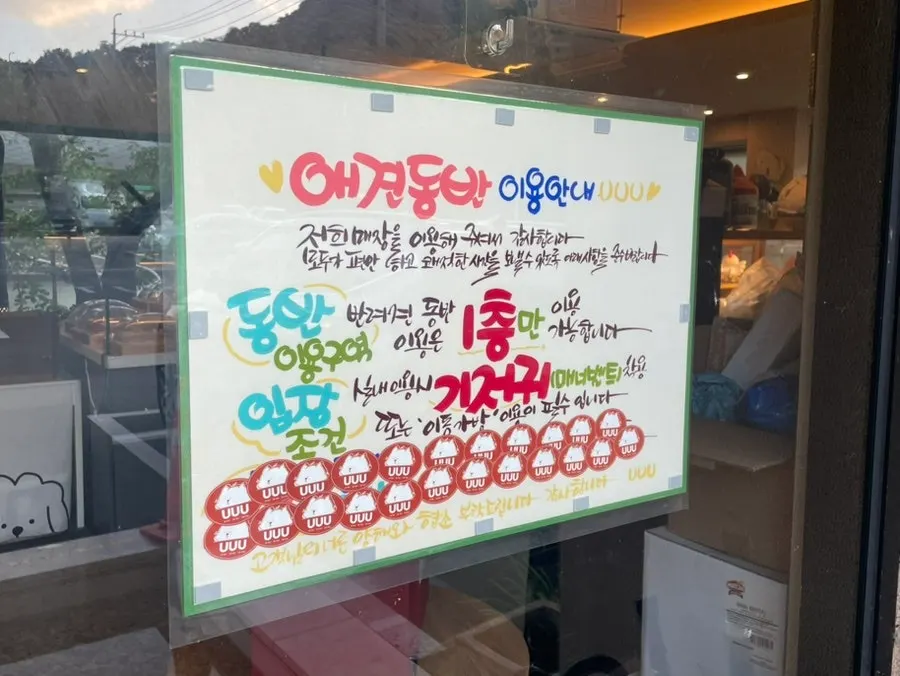 애견동반 이용안내 UUU
저희 매장을 이용해 주셔서 감사합니다
모두가 편안하고 쾌적한 시간을 보낼수 있도록 아래사항을 준수바랍니다
동반 이용구역
반려견 동반 이용은 1층만 이용 가능합니다
입장 조건
실내이용시 기저귀(매너벨트)착용
또는 "이동가방" 이용이 필수입니다
UUU UUU UUU UUU UUU UUU UUU UUU UUU UUU
UUU UUU UUU UUU UUU UUU UUU UUU UUU UUU UUU
고객님의 너른 양해와 협조 부탁드립니다 감사합니다 UUU